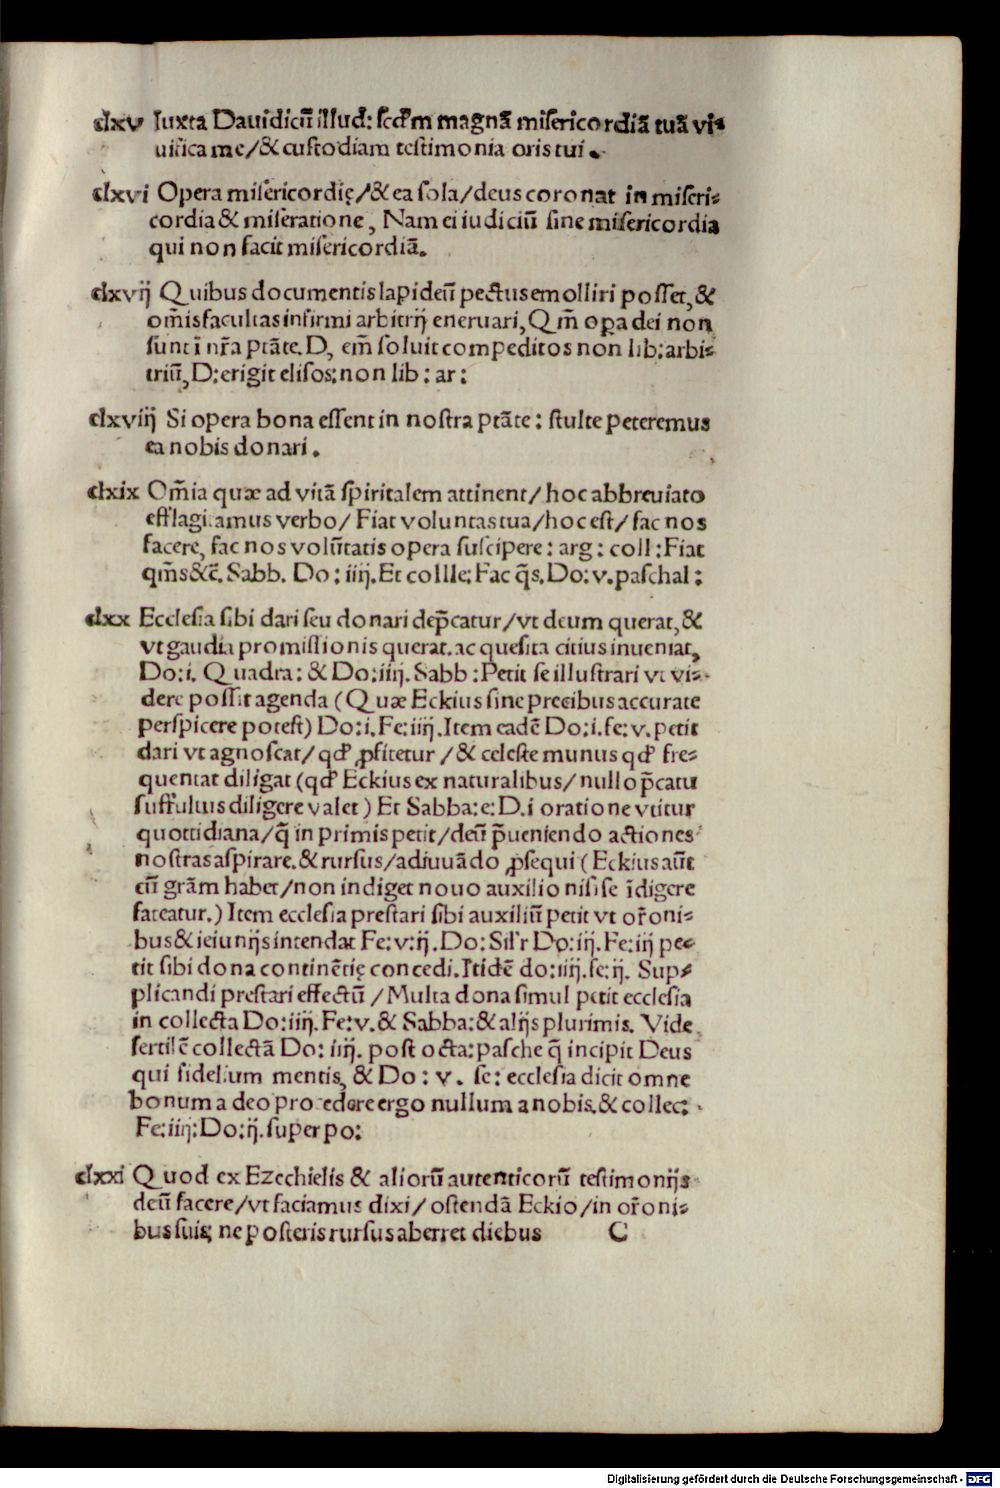 clxv Iuxta Dauidicū illud: scd̄m magnā misericordiā tuā vi-
uifica me/& custodiam testimonia oris tui.
clxvi Opera misericordię/& ea sola/deus coronat in miseri-
cordia & miseratione, Nam ei iudiciū sine misericordia
qui non facit misericordiā.
clxvij Quibus documentis lapideū pectus emolliri posset, &
om̄is facultas infirmi arbitrij eneruari, Qm̄ opa dei non
sunt ī nr̄a ptāte. D, em̄ soluit compeditos non lib: arbi-
triū, D: erigit elisos: non lib: ar:
clxviij Si opera bona essent in nostra ptāte: stulte peteremus
ea nobis donari.
clxix Om̄ia quæ ad vitā spiritalem attinent/hoc abbreuiato
efflagitamus verbo/Fiat voluntas tua/hoc est/fac nos
facere, fac nos volūtatis opera suscipere: arg: coll: Fiat
qm̄s &c̄. Sabb. Do: iiij. Et collle: Fac q̄s. Do: v. paschal:
clxx Ecclesia sibi dari seu donari dep̄catur/vt deum querat, &
vt gaudia promissionis querat. ac quesita citius inueniat,
Do: i. Quadra: & Do: iiij. Sabb: Petit se illustrari vt vi-
dere possit agenda (Quæ Eckius sine precibus accurate
perspicere potest) Do: i. Fe: iiij. Item eadē Do: i. fe: v. petit
dari vt agnoscat/qd̄ ꝓfitetur/& celeste munus qd̄ fre-
quentat diligat (qd̄ Eckius ex naturalibus/nullo p̄catu
suffultus diligere valet) Et Sabba: e: D. i oratione vtitur
quottidiana/q̄ in primis petit/deū p̄ueniendo actiones
nostras aspirare. & rursus/adiuuādo ꝓsequi (Eckius aūt
cū grām habet/non indiget nouo auxilio nisi se īdigere
fateatur.) Item ecclesia prestari sibi auxiliū petit vt or̄oni-
bus & ieiunijs intendat Fe: v: ij. Do: Silr Do: iij. Fe: iij pe-
tit sibi dona continētię concedi. Itidē do: iiij. fe: ij. Sup-
plicandi prestari effectū/Multa dona simul petit ecclesia
in collecta Do: iiij. Fe: v. & Sabba: & alijs plurimis. Vide
fertilē collectā Do: iiij. post octa: pasche q̄ incipit Deus
qui fidelium mentis, & Do: v. fe: ecclesia dicit omne
bonum a deo procedere ergo nullum a nobis. & collec:
Fe: iiij: Do: ij. super po:
clxxi Quod ex Ezechielis & aliorū autenticorū testimonijs
deū facere/vt faciamus dixi/ostendā Eckio/in or̄oni-
bus suis, ne posteris rursus aberret diebus C
Digitalisierung gefördert durch die Deutsche Forschungsgemeinschaft - DFG